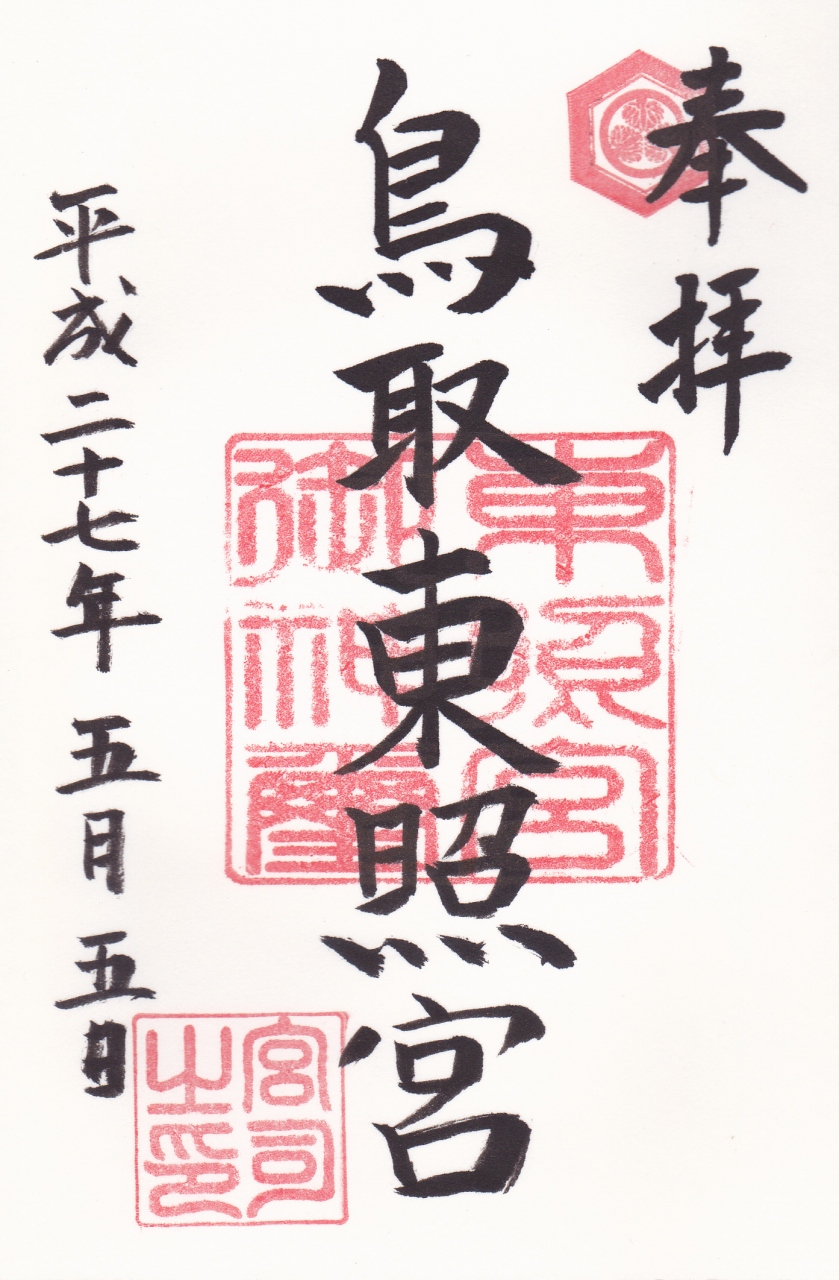 奉拝
鳥取東照宮
東照宮
御神璽
平成二十七年 五月 五日
宮司
之印